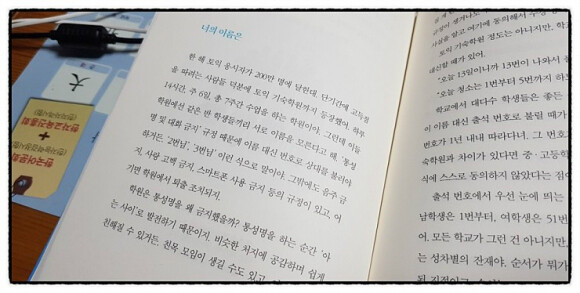 너의 이름은
한 해 토익 응시자가 200만 명에 달한대. 단기간에 고득점
을 따려는 사람들 덕분에 토익 기숙학원까지 등장했어. 하루
14시간, 주 6일, 총 7주간 수업을 하는 학원이야. 그런데 이들
학원에선 같은 반 학생들끼리 서로 이름을 모른다고 해. '통성
명 및 대화 금지' 규정 때문에 이름 대신 번호로 상대를 불러야
하거든. '2번님', '3번님' 이런 식으로 말이야. 그밖에도 음주 금
지, 사랑 고백 금지, 스마트폰 사용 금지 등의 규정이 있고, 어
기면 학원에서 퇴출 조치되지.
학원은 통성명을 왜 금지했을까? 통성명을 하는 순간 '아
는 사이'로 발전하기 때문이지. 비슷한 처지에 공감하며 쉽게
친해질 수 있거든. 친목 모임이 생길 수도 있고
사실을 알고 여기에 동의해서
토익 기숙학원 정도는 아니지만, 학
대신할 때가 있어.
"오늘 13일이니까 13번이 나와서
"오늘 청소는 1번부터 5번까지 하
학교에서 대다수 학생들은 좋든
이 이름 대신 출석 번호로 불릴 때가
번호가 1년 내내 따라다녀. 그 번호
숙학원과 차이가 있다면 중·고등학
식에 스스로 동의하지 않았다는 점이
출석 번호에서 우선 눈에 띄는
남학생은 1번부터, 여학생은 51번
어. 모든 학교가 그런 건 아니지만,
는 성차별의 잔재야. 순서가 뭐가
大
한국어문회
+
한자교육진흥회